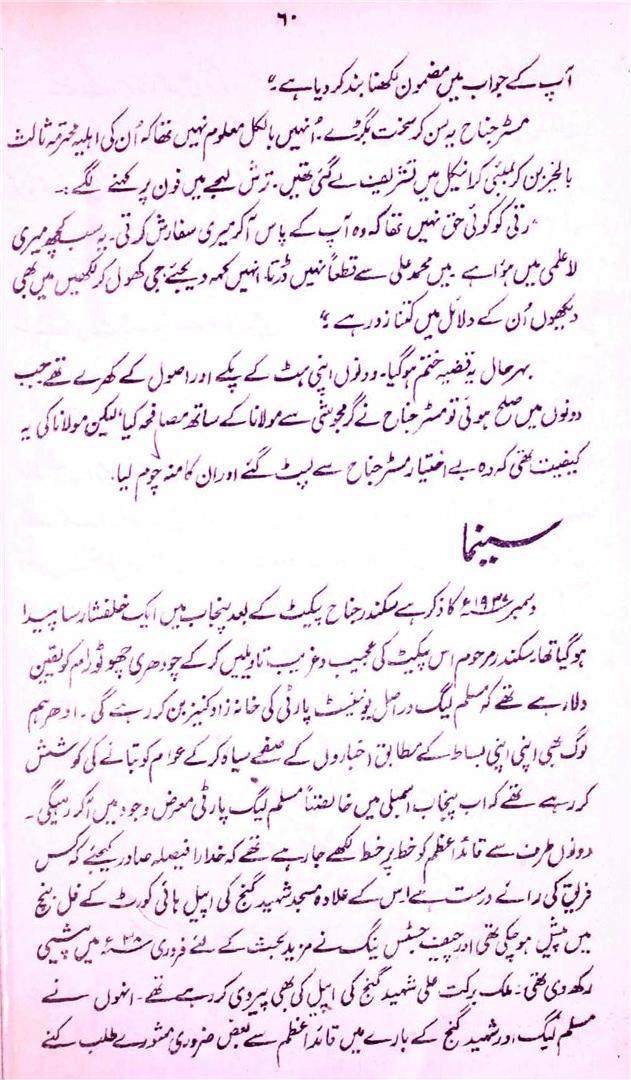 ۶۰
آپ کے جواب میں مضمون لکھنا بند کر دیا ہے۔“
مسٹر جناح یہ سن کر سخت بگڑے۔ اُنہیں بالکل معلوم نہیں تھا کہ اُن کی اہلیہ محترمہ ثالث
بالخیر بن کر بمبئی کرانیکل میں تشریف لے گئی تھیں۔ ترش لہجے میں فون پر کہنے لگے :۔
”رتی کو کوئی حق نہیں تھا کہ وہ آپ کے پاس آ کر میری سفارش کرتی۔ یہ سب کچھ میری
لاعلمی میں ہوٴا ہے۔ میں محمد علی سے قطعاً نہیں ڈرتا، انہیں کہہ دیجئے جی کھول کر لکھیں میں بھی
دیکھوں اُن کے دلائل میں کتنا زور ہے۔“
بہرحال یہ قضیہ ختم ہو گیا۔ دونوں اپنی ہٹ کے پکے اور اصول کے کھرے تھے جب
دونوں میں صلح ہوئی تو مسٹر جناح نے گرمجوشی سے مولانا کے ساتھ مصافحہ کیا، لیکن مولانا کی یہ
کیفیت تھی کہ وہ بے اختیار مسٹر جناح سے لپٹ گئے اور ان کا منہ چوم لیا۔
سینما
دسمبر ۱۹۳۷ء کا ذکر ہے سکندر جناح پیکٹ کے بعد پنجاب میں ایک خلفشار سا پیدا
ہو گیا تھا، سکندر مرحوم اس پیکٹ کی عجیب و غریب تاویلیں کر کے چودھری چھوٹو رام کو یقین
دلا رہے تھے کہ مسلم لیگ دراصل یونینسٹ پارٹی کی خانہ زاد کنیز بن کر رہے گی۔ ادھر ہم
لوگ بھی اپنی اپنی بساط کے مطابق اخباروں کے صفحے سیاہ کر کے عوام کو بتانے کی کوشش
کر رہے تھے کہ اب پنجاب اسمبلی میں خالصتاً مسلم لیگ پارٹی معرض وجود میں آ کر رہیگی۔
دونوں طرف سے قائد اعظم کو خط پر خط لکھے جا رہے تھے کہ خدارا فیصلہ صادر کیجئے کہ کس
فریق کی رائے درست ہے اس کے علاوہ مسجد شہید گنج کی اپیل ہائی کورٹ کے فل بنچ
میں پیش ہو چکی تھی اور چیف جسٹس ینگ نے مزید بحث کے لئے فروری ۳۸ء میں پیشی
رکھ دی تھی۔ ملک برکت علی شہید گنج کی اپیل کی بھی پیروی کر رہے تھے۔ انہوں نے
مسلم لیگ اور شہید گنج کے بارے میں قائد اعظم سے بعض ضروری مشورے طلب کئے